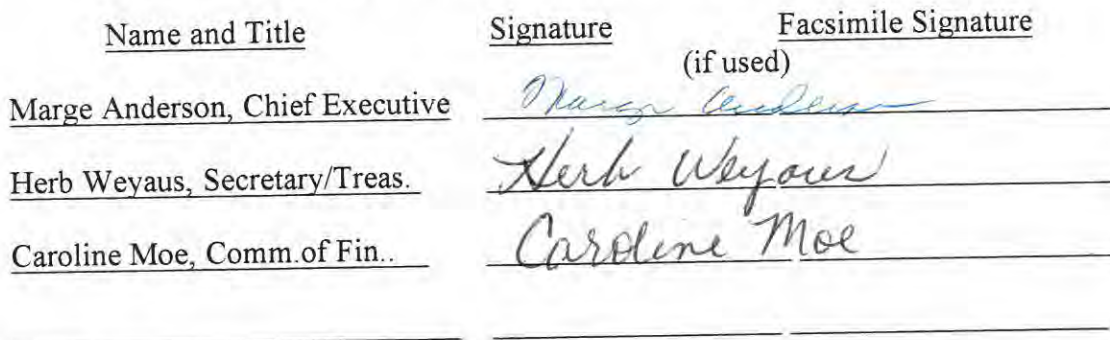 Name and Title Signature Facsimile Signature
(if used)
Marge Anderson, Chief Executive Marge Anderson
Herb Weyaus, Secretary/Treas. Herb Weyaus
Caroline Moe, Comm.of Fin.. Caroline Moe